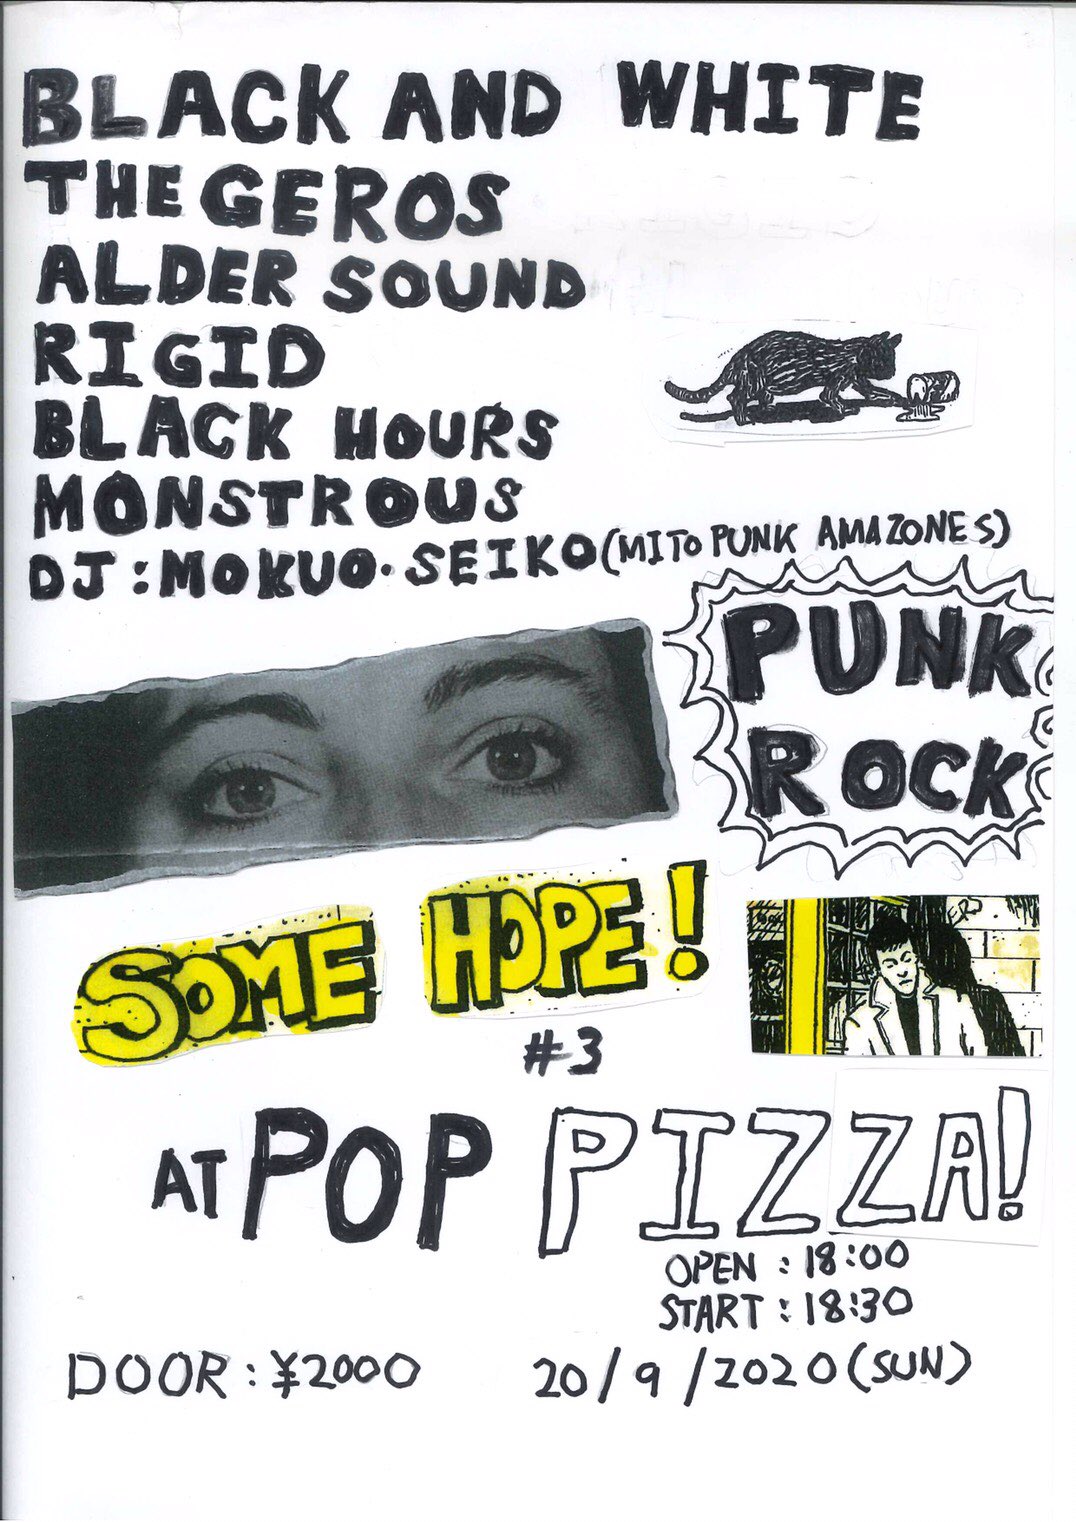 BLACK AND WHITE
THE GEROS
ALDER SOUND
RIGID
BLACK HOURS
MONSTROUS
DJ:MOKUO・SEIKO(MITO PUNK AMAZONES)
PUNK
ROCK
SOME HOPE!
#3
AT POP PIZZA!
OPEN : 18:00
START : 18:30
DOOR : ¥2000
20/9/2020(SUN)